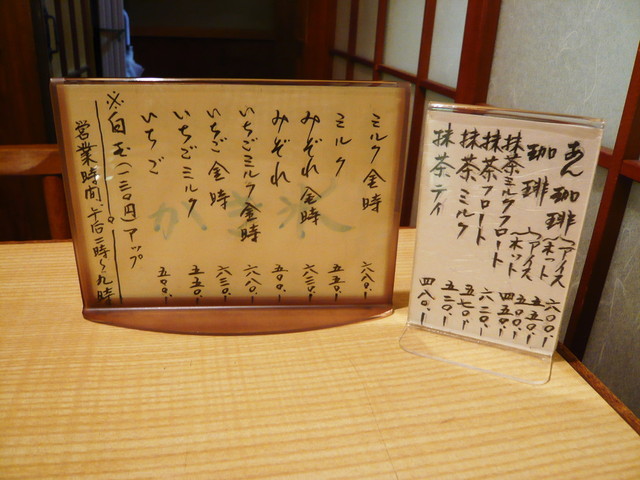 かき氷
ミルク金時 六八〇.ー
ミルク 五五〇.ー
みぞれ金時 六三〇.ー
みぞれ 五〇〇.ー
いちごミルク金時 六八〇.ー
いちご金時 六三〇.ー
いちごミルク 五五〇.ー
いちご 五〇〇.ー
※白玉(一三〇円)アップ
営業時間、午后二時〜九時
あん珈琲(アイス 六〇〇.ー
ホット 五五〇.ー
珈琲(アイス 五〇〇.ー
ホット 四五〇.ー
抹茶ミルクフロート 六二〇.ー
抹茶フロート 五七〇.ー
抹茶ミルク 五二〇.ー
抹茶ティ 四八〇.ー